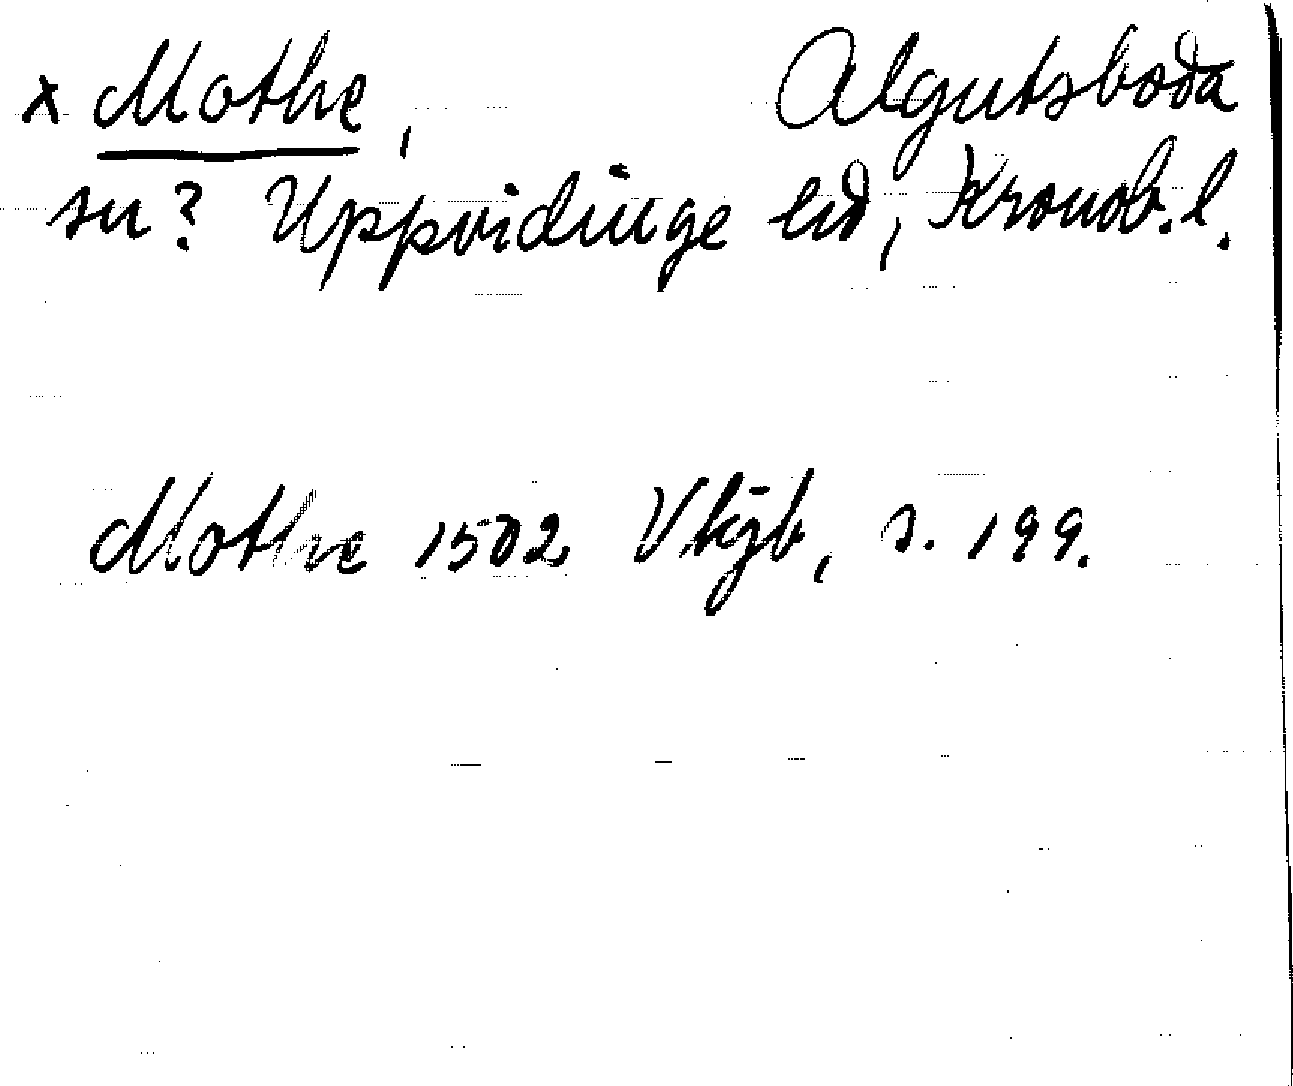 x Mothe, Algutsboda
sn? Uppvidinge hd, Kronob. l.
Mothe 1502 Vkjb, s. 199.